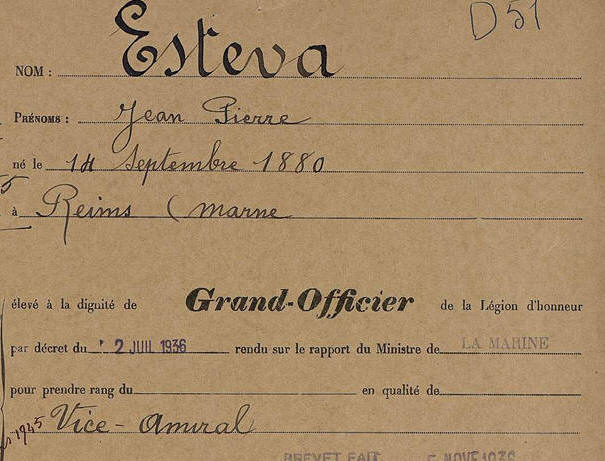 D51
NOM : Esteva
PRÉNOMS : Jean Pierre
né le 14 Septembre 1880
5
à Reims (Marne
élevé à la dignité de Grand-Officier de la Légion d'honneur
par décret du 2 JUIL 1936 rendu sur le rapport du Ministre de LA MARINE
pour prendre rang du en qualité de
1945 Vice-Amiral
BREVET FAIT 5 NOV 1936